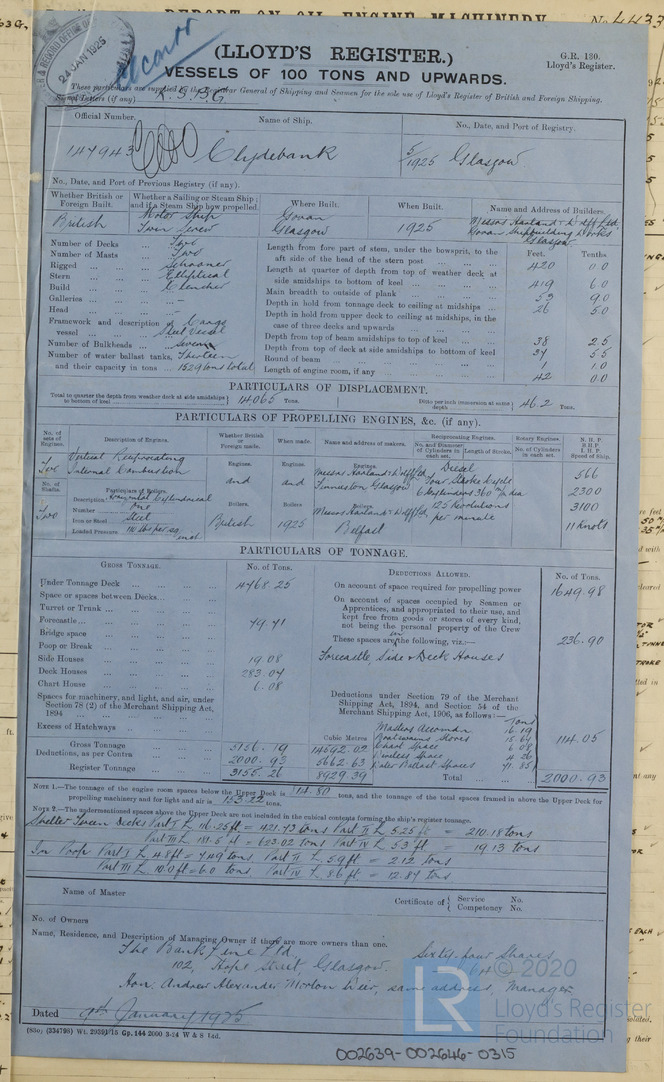 REPORT ON OIL ENGINE MACHINERY. No. 4433
24 JAN 1925
(LLOYD'S REGISTER.)
G.R. 130.
Lloyd's Register.
VESSELS OF 100 TONS AND UPWARDS.
These particulars are supplied by the Registrar General of Shipping and Seamen for the sole use of Lloyd's Register of British and Foreign Shipping.
Signal Letters (if any)
Official Number. Name of Ship. No., Date, and Port of Registry.
147943 Clydebank 5/1925 Glasgow
No., Date, and Port of Previous Registry (if any).
Whether British or Foreign Built. Whether a Sailing or Steam Ship; and if a Steam Ship how propelled. Where Built. When Built. Name and Address of Builders.
British Motor Ship Twin Screw Govan Glasgow 1925 Messrs Harland & Wolff Ltd. Govan Shipbuilding Works Glasgow
Number of Decks Two
Number of Masts Two
Rigged Schooner
Stern Elliptical
Build Clencher
Galleries -
Head -
Framework and description of vessel Steel Vessel
Number of Bulkheads Seven
Number of water ballast tanks, Thirteen
and their capacity in tons 1529 tons total
Feet. Tenths
Length from fore part of stem, under the bowsprit, to the aft side of the head of the stern post 420 00
Length at quarter of depth from top of weather deck at side amidships to bottom of keel 419 60
Main breadth to outside of plank 53 90
Depth in hold from tonnage deck to ceiling at midships 26 50
Depth in hold from upper deck to ceiling at midships, in the case of three decks and upwards
Depth from top of beam amidships to top of keel 38 25
Depth from top of deck at side amidships to bottom of keel 37 55
Round of beam 1 10
Length of engine room, if any 42 00
PARTICULARS OF DISPLACEMENT.
Total to quarter the depth from weather deck at side amidships to bottom of keel 14065 Tons. Ditto per inch immersion at same depth 46.2 Tons.
PARTICULARS OF PROPELLING ENGINES, &c. (if any).
No. of sets of Engines. Description of Engines. Whether British or Foreign made. When made. Name and address of makers. Reciprocating Engines. Rotary Engines. N.H.P. B.H.P. I.H.P. Speed of Ship.
No. and Diameter of Cylinders in each set. Length of Stroke. No. of Cylinders in each set.
Two Vertical Reciprocating Internal Combustion
Engines. and Engines. and Engines. Messrs Harland & Wolff Ltd Finnieston Glasgow
Diesel
Four Stroke Cycle
125 Revolutions per minute
566
2300
3100
11 Knots
No. of Shafts. Particulars of Boilers.
Two
Description Horizontal Cylindrical
Number One
Iron or Steel Steel
Loaded Pressure 110 lbs per sq inch
Boilers. British Boilers 1925 Boilers. Messrs Harland & Wolff Ltd. Belfast
PARTICULARS OF TONNAGE.
GROSS TONNAGE. No. of Tons. DEDUCTIONS ALLOWED. No. of Tons.
Under Tonnage Deck 4768.25
Space or spaces between Decks
Turret or Trunk
Forecastle 79.71
Bridge space
Poop or Break
Side Houses 19.08
Deck Houses 283.07
Chart House 6.08
Spaces for machinery, and light, and air, under Section 78 (2) of the Merchant Shipping Act, 1894
Excess of Hatchways
Cubic Metres
Gross Tonnage 5156.19 14592.02
Deductions, as per Contra 2000.93 5662.63
Register Tonnage 3155.26 8929.39
On account of space required for propelling power 1649.98
On account of spaces occupied by Seamen or Apprentices, and appropriated to their use, and kept free from goods or stores of every kind, not being the personal property of the Crew 236.90
These spaces are in the following, viz.:—
Forecastle, Side & Deck Houses
Deductions under Section 79 of the Merchant Shipping Act, 1894, and Section 54 of the Merchant Shipping Act, 1906, as follows:—
Tons
Masters Accomdn 16.19
Boatswains Stores 15.67
Chart Space 6.08
Wireless Space 4.26
Water Ballast Spaces 71.85
114.05
Total 2000.93
NOTE 1.—The tonnage of the engine room spaces below the Upper Deck is 714.80 tons, and the tonnage of the total spaces framed in above the Upper Deck for propelling machinery and for light and air is 153.22 tons.
NOTE 2.—The undermentioned spaces above the Upper Deck are not included in the cubical contents forming the ship's register tonnage.
Shelter Tween Decks Part I L 116.25 ft = 421.73 tons Part II L 52.5 ft = 210.18 tons
Part III L 181.5 ft = 623.02 tons Part IV L 5.3 ft = 19.13 tons
In Poop Part I L 14.8 ft = 7.49 tons Part II L 5.9 ft = 2.12 tons
Part III L 10.0 ft = 6.0 tons Part IV L 8.6 ft = 12.87 tons
Name of Master
Certificate of { Service No. Competency No.
No. of Owners
Name, Residence, and Description of Managing Owner if there are more owners than one.
The Bank Line Ltd. Sixty-four Shares
102, Hope Street, Glasgow. 64
Hon. Andrew Alexander Morton Weir, same address, Manager
Dated 9th January 1925
(850) (334798) Wt. 29391/15 Gp. 144 2000 3-24 W & S Ltd.
LR © 2020
Lloyd's Register
Foundation
002639-002646-0315